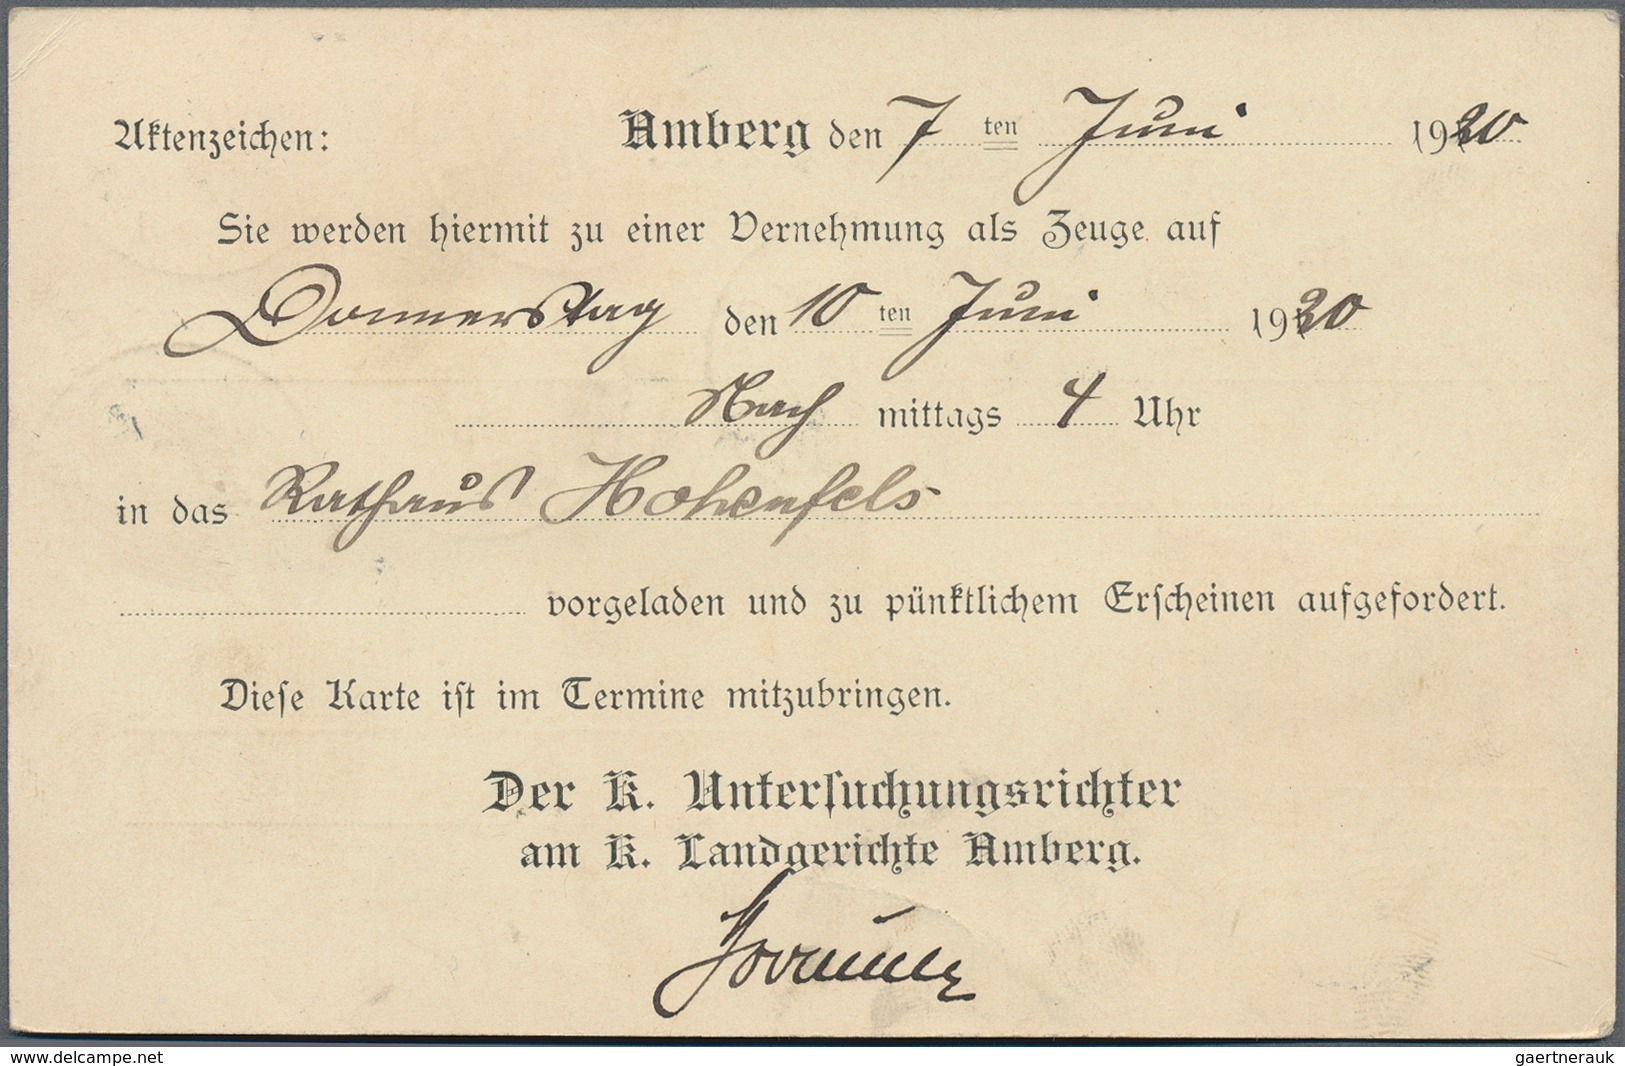 Aktenzeichen: Amberg den 7 ten Juni 1920
Sie werden hiermit zu einer Vernehmung als Zeuge auf
Donnerstag den 10 ten Juni 1920
Nach mittags 4 Uhr
in das Rathaus Hohenfels
vorgeladen und zu pünktlichem Erscheinen aufgefordert.
Diese Karte ist im Termine mitzubringen.
Der K. Untersuchungsrichter
am K. Landgerichte Amberg.
www.delcampe.net
gaertnerauk